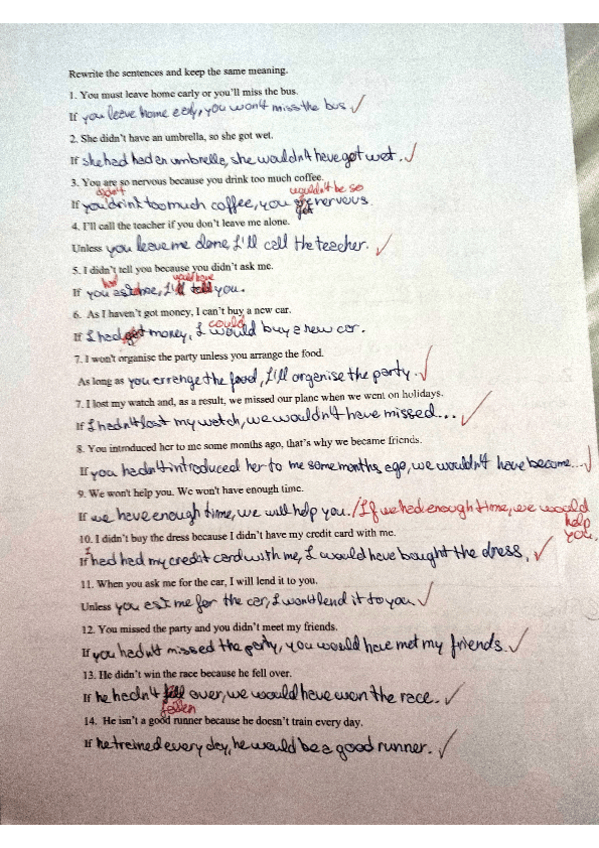 Rewrite the sentences and keep the same meaning.
1. You must leave home early or you'll miss the bus.
If you leave home early, you won't miss the bus ✓
2. She didn't have an umbrella, so she got wet.
If she had had an umbrella, she wouldn't have got wet. ✓
3. You are so nervous because you drink too much coffee.
didn't wouldn't be so
If you drink too much coffee, you get nervous.
4. I'll call the teacher if you don't leave me alone.
Unless you leave me alone, I'll call the teacher. ✓
5. I didn't tell you because you didn't ask me.
had would have
If you asked me, I'll told you.
6. As I haven't got money, I can't buy a new car.
could
If I had got money, I would buy a new car.
7. I won't organise the party unless you arrange the food.
As long as you arrange the food, I'll organise the party. ✓
7. I lost my watch and, as a result, we missed our plane when we went on holidays.
If I hadn't lost my watch, we wouldn't have missed... ✓
8. You introduced her to me some months ago, that's why we became friends.
If you hadn't introduced her to me some months ago, we wouldn't have become... ✓
9. We won't help you. We won't have enough time.
If we have enough time, we will help you. / If we had enough time, we would
help
you.
10. I didn't buy the dress because I didn't have my credit card with me.
I
If had had my credit card with me, I would have bought the dress. ✓
11. When you ask me for the car, I will lend it to you.
Unless you ask me for the car, I won't lend it to you ✓
12. You missed the party and you didn't meet my friends.
If you hadn't missed the party, you would have met my friends. ✓
13. He didn't win the race because he fell over.
If he hadn't fell over, we would have won the race. ✓
fallen
14. He isn't a good runner because he doesn't train every day.
If he trained every day, he would be a good runner. ✓